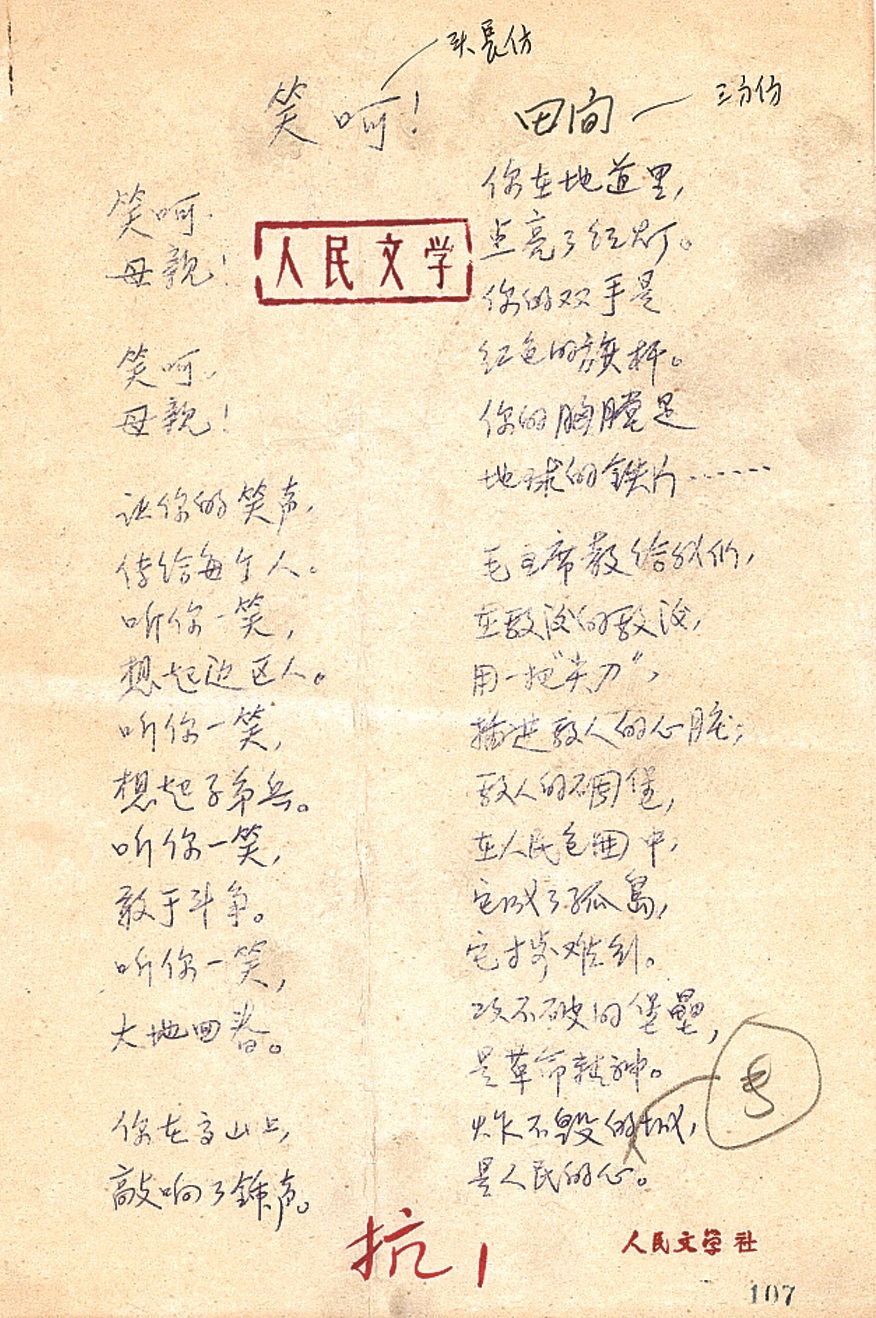 头长仿
笑呵!
田间
三方仿
笑呵,
母亲!
笑呵,
母亲!
让你的笑声,
传给每个人。
听你一笑,
想起边区人。
听你一笑,
想起子弟兵。
听你一笑,
敢于斗争。
听你一笑,
大地回春。
你在高山上,
敲响了钟声。
人民文学
你在地道里,
点亮了红灯。
你的双手是
红色的旗杆。
你的胸膛是
地球的铁片……
毛主席教给我们,
在敌后的敌后,
用一把“尖刀”,
插进敌人的心脏;
敌人的碉堡,
在人民包围中,
它成了孤岛,
它寸步难行。
攻不破的堡垒,
是革命精神。
炸不毁的城,
是人民的心。
抗1
人民文学社
107